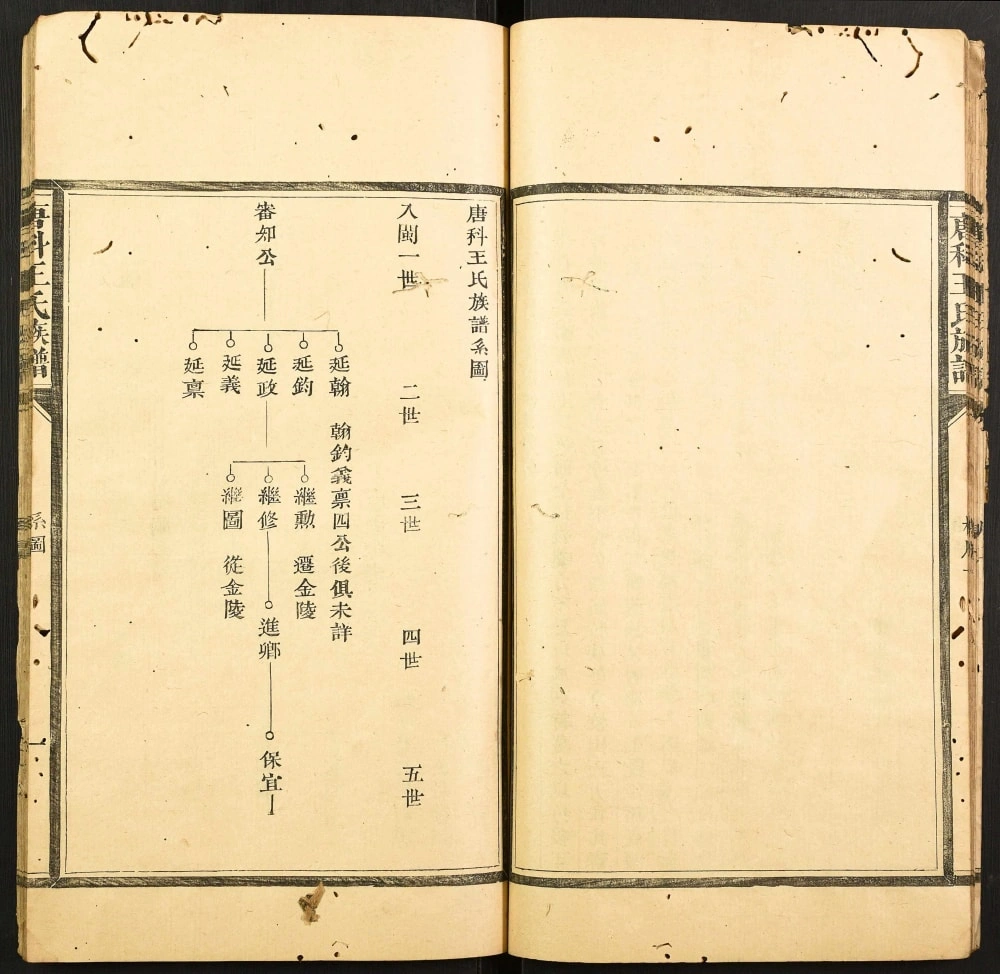 唐科王氏族譜
唐科王氏族譜系圖
入閩一世
二世
三世
四世
五世
審知公
延翰
翰鈞義稟四公後俱未詳
延鈞
延政
延義
延稟
繼勲
遷金陵
繼修
繼圖
從金陵
進郷
保宜
唐科王氏族譜
系圖
一